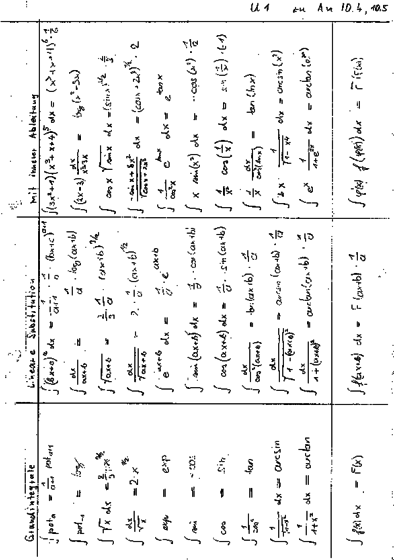 U1 zu An 10.4, 10.5
Grundintegrale Lineare Substitution Mit innerer Ableitung
∫ pot_a = 1/(a+1) pot_{a+1}
∫ pot_{-1} = log ∫ dx/(ax+b) = 1/a · log(ax+b) ∫ (2x-3) dx/(x²-3x) = log(x²-3x)
∫ √x dx = 2/3 · x^{3/2} ∫ √(ax+b) = 2/3 · 1/a (ax+b)^{3/2} ∫ cos x √(sin x) dx = (sin x)^{3/2} · 2/3
∫ dx/√x = 2·x^{1/2} ∫ dx/√(ax+b) = 2 · 1/a · (ax+b)^{1/2}
∫ exp = exp ∫ e^{ax+b} dx = 1/a · e^{ax+b} ∫ 1/cos²x e^{tan x} dx = e^{tan x}
∫ sin = -cos ∫ sin(ax+b) dx = -1/a · cos(ax+b) ∫ x sin(x²) dx = -cos(x²) · 1/2
∫ cos = sin ∫ cos(ax+b) dx = 1/a · sin(ax+b) ∫ 1/x² cos(1/x) dx = sin(1/x) · (-1)
∫ 1/cos² = tan ∫ dx/cos²(ax+b) = tan(ax+b) · 1/a ∫ 1/x dx/cos²(ln x) = tan(ln x)
∫ 1/√(1-x²) dx = arcsin ∫ dx/√(1-(ax+b)²) = arcsin(ax+b) · 1/a ∫ 2x 1/√(1-x⁴) dx = arcsin(x²)
∫ 1/(1+x²) dx = arctan ∫ dx/(1+(ax+b)²) = arctan(ax+b) · 1/a ∫ e^x 1/(1+e^{2x}) dx = arctan(e^x)
∫ f(x) dx = F(x) ∫ f(ax+b) dx = F(ax+b) · 1/a